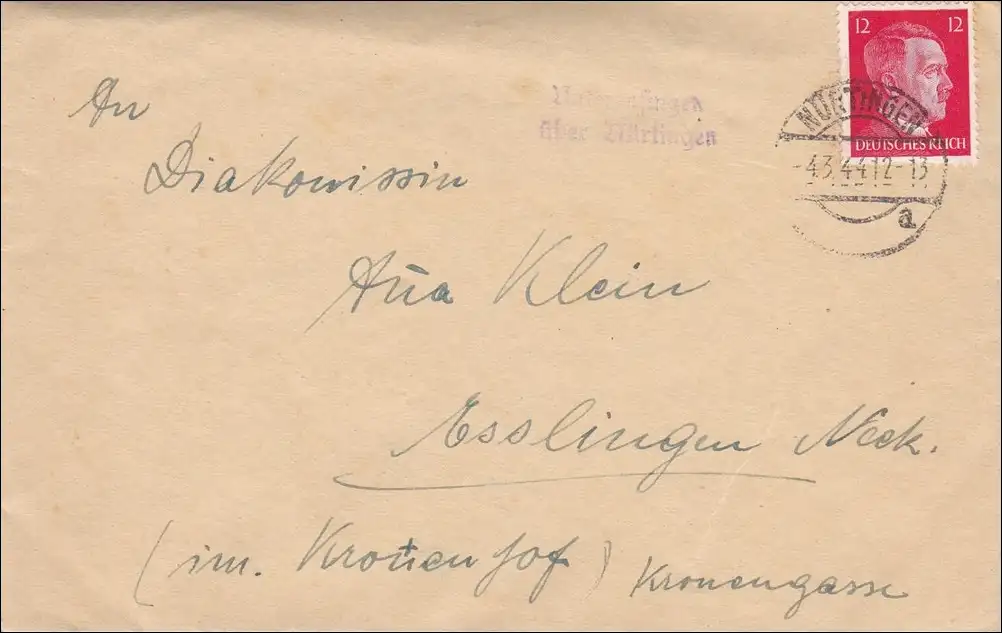 12 12
DEUTSCHES REICH
NÜRTINGEN
-4.3.44 12-13
a
über Nürtingen
An
Diakonissin
Klein
Esslingen Neck.
(im. Kronenhof) Kronengasse